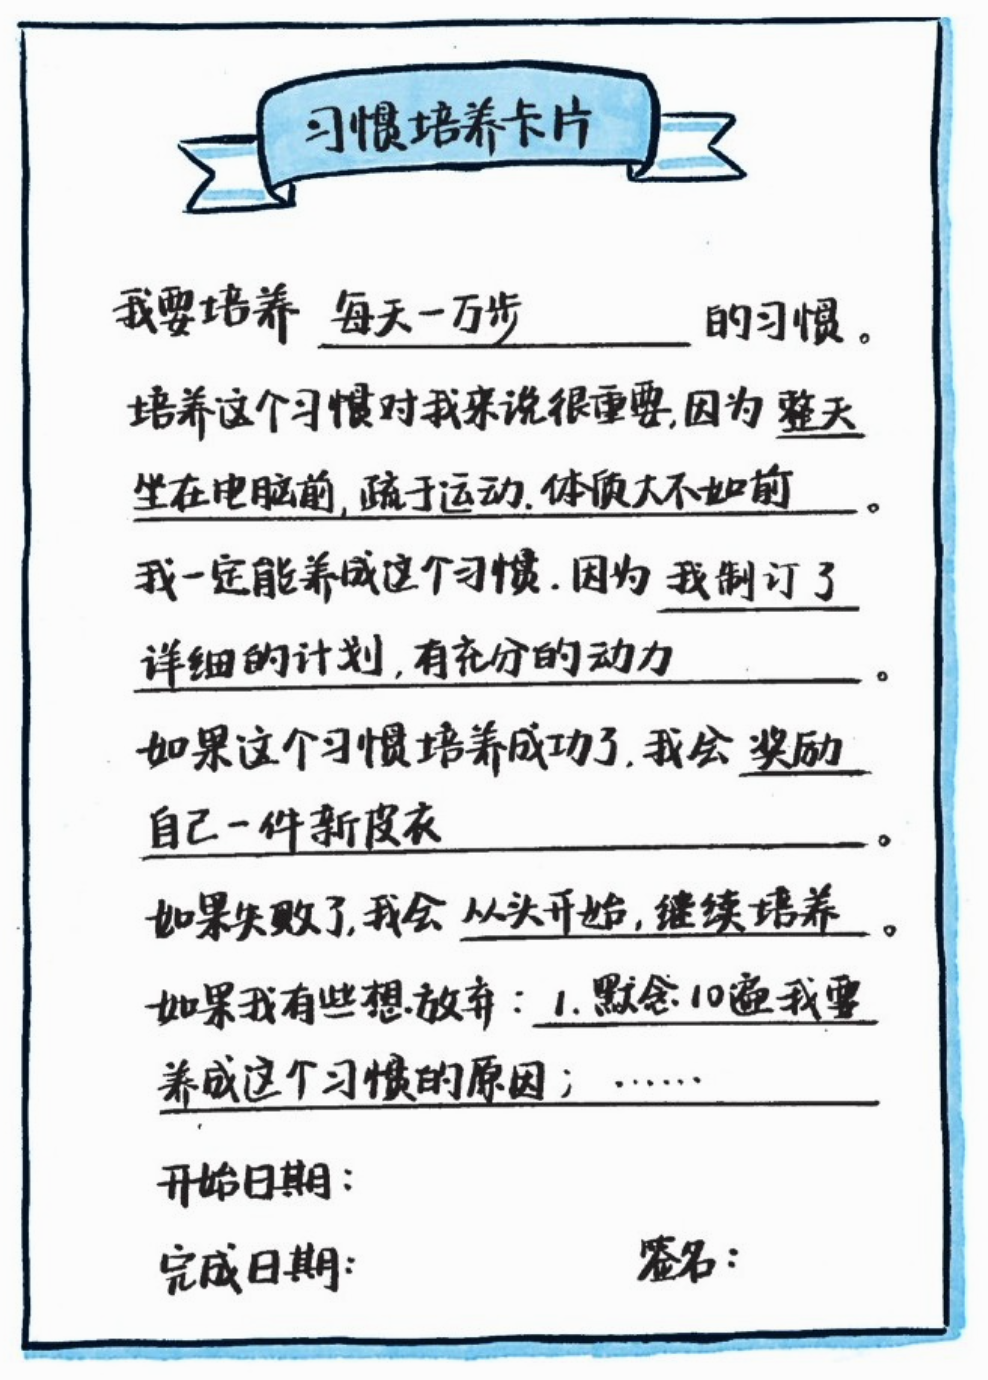 习惯培养卡片
我要培养 每天一万步 的习惯。
培养这个习惯对我来说很重要,因为 整天
坐在电脑前,疏于运动.体质大不如前。
我一定能养成这个习惯.因为 我制订了
详细的计划,有充分的动力。
如果这个习惯培养成功了.我会 奖励
自己一件新皮衣。
如果失败了,我会 从头开始,继续培养。
如果我有些想放弃：1.默念10遍我要
养成这个习惯的原因；……
开始日期：
完成日期： 签名：